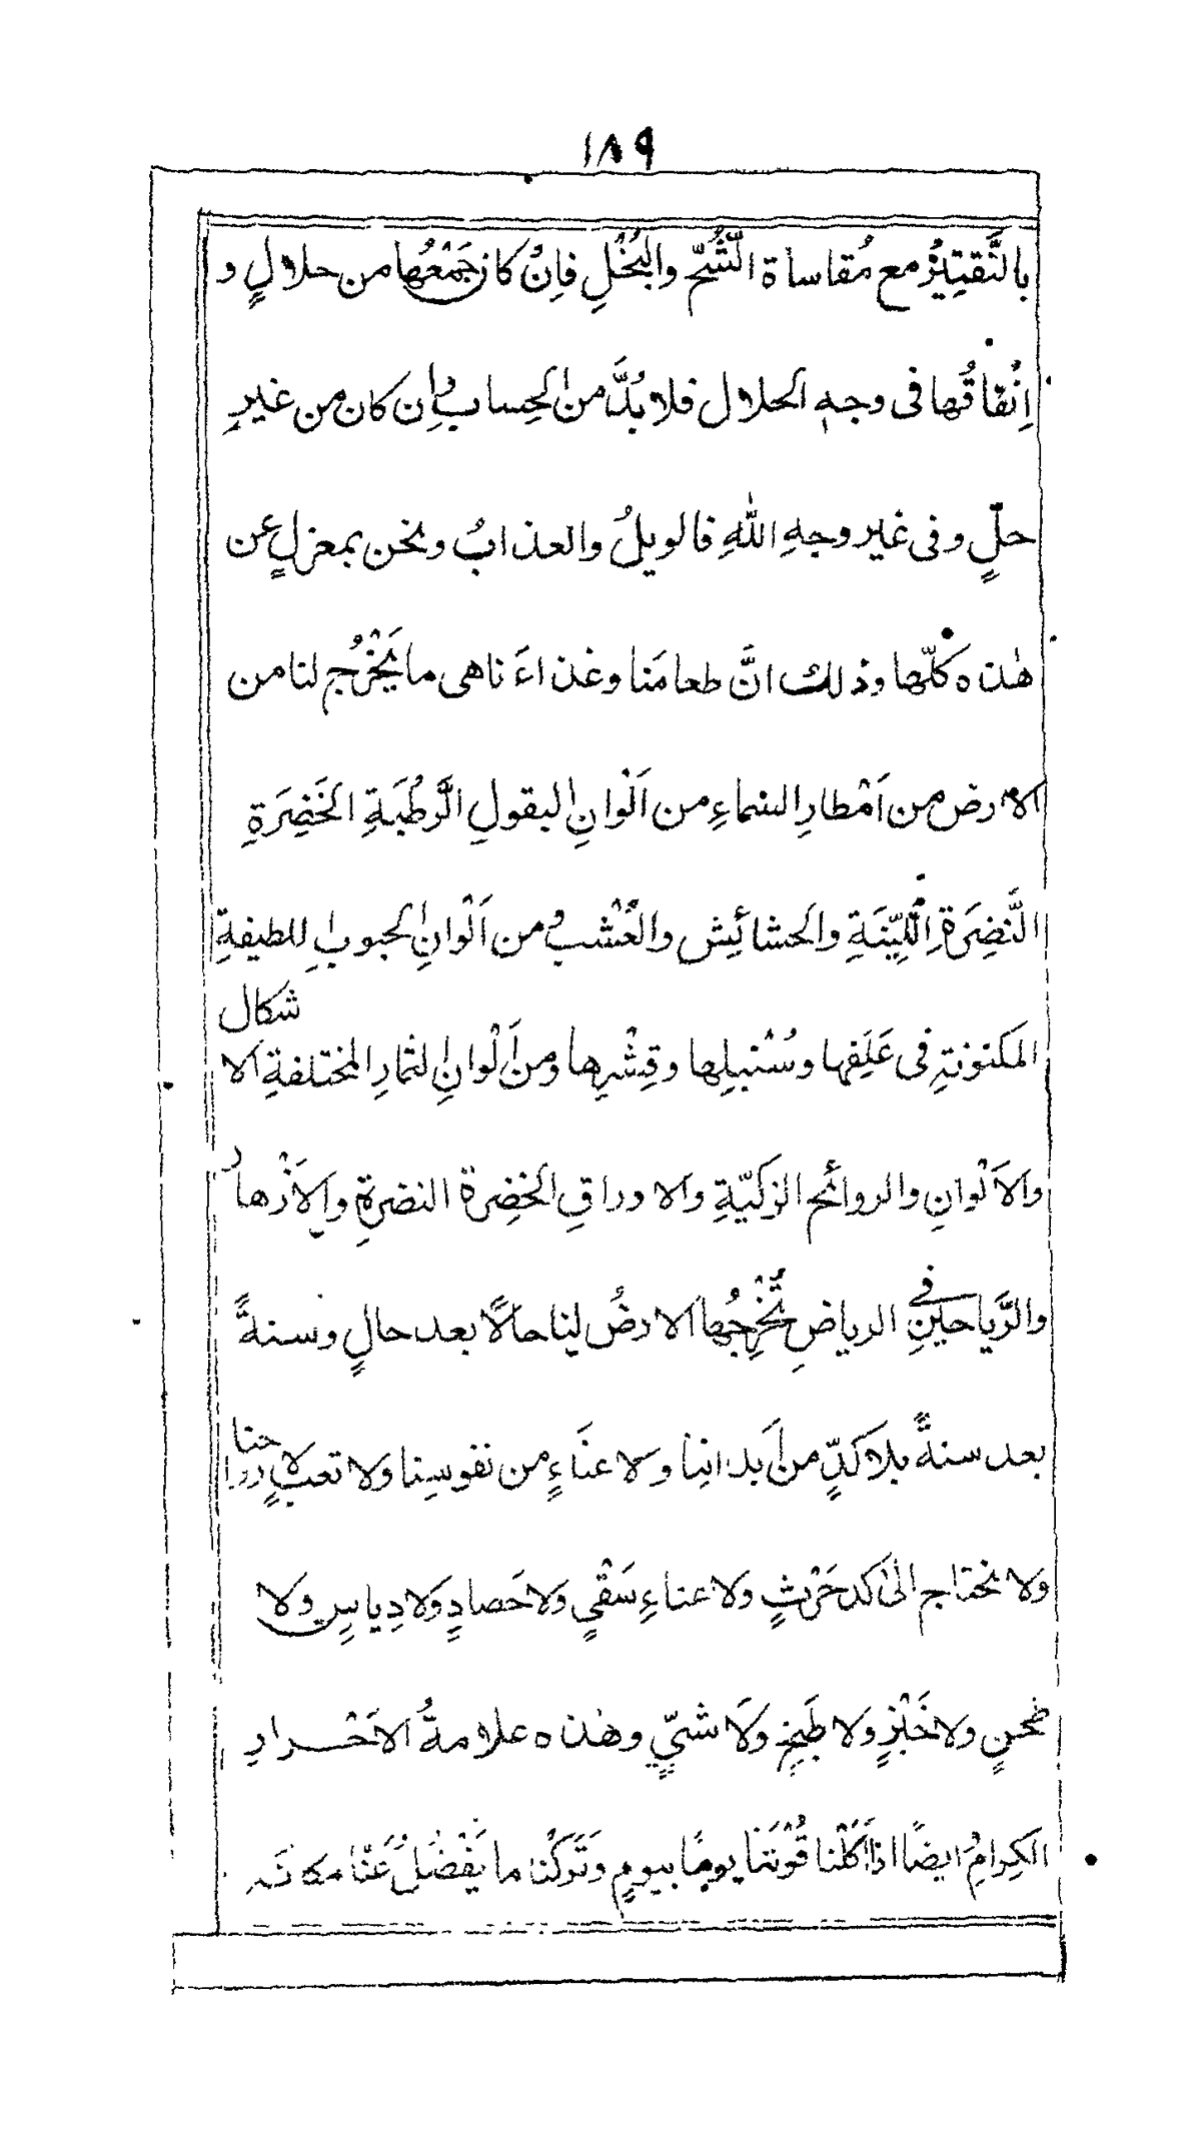 ١٨٩
بالتَّقتِيْرِ مع مُقاساة الشُّحِّ والبُخْلِ فاِنْ كان جَمْعُها من حلالٍ و
اِنْفاقُها فى وجهِ الحلال فلا بُدَّ من الحِساب وان كان من غيرِ
حلٍّ وفى غير وجهِ اللّٰهِ فالويلُ والعذابُ ونحن بمعزلٍ عن
هٰذه كلّها وذلك انَّ طعامَنا وغذاءَ ناهى ما يَخْرُج لنا من
الارض من اَمْطارِ السماءِ من اَلْوانِ البقولِ الرَّطْبَةِ الخَضِرَةِ
النَّضِرَةِ اللَّيِّنَةِ والحشائِش والعُشْب ومن اَلْوانِ الحبوبِ اللطيفةِ
المكنونةِ فى غَلَفِها وسُنْبلِها وقِشْرِها ومن اَلْوانِ الثمارِ المختلفةِ الاشكال
والاَلْوانِ والروائح الزكيّةِ والاوراقِ الخضِرة النضرةِ والاَزْهار
والرَّياحينِ فى الرياضِ تُخْرِجُها الارضُ لنا حالًا بعد حالٍ وسنةً
بعد سنةً بلا كدٍّ من اَبدانِنا ولا عنَاءٍ من نفوسِنا ولا تعبٍ لارواحنا
ولا نحتاج الىٰ كد حَرْثٍ ولا عناءِ سَقْىٍ ولا حَصادٍ ولا دِياسٍ ولا
طحنٍ ولا خَبْزٍ ولا طَبخٍ ولَا شىٍّ وهٰذه علامةُ الاَحْرارِ
الكِرامِ ايضًا اذا اَكَلْنا قُوْتَنا يومًا بيومٍ وتَرَكْنا ما يَفْضُلُ عَنّا مكانَه